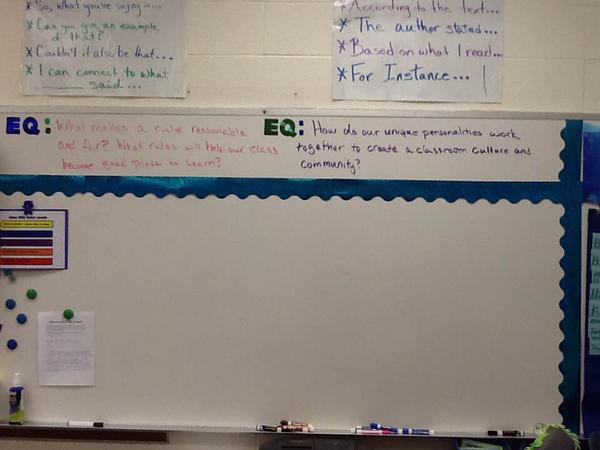 * So, what you're saying is...
* Can you give an example of that?
* Couldn't it also be that...
* I can connect to what
____ said...
* According to the text...
* The author stated...
* Based on what I read...
* For Instance...
EQ: What makes a rule reasonable
and fair? What rules will help our class
become good place to learn?
EQ: How do our unique personalities work
together to create a classroom culture and
community?